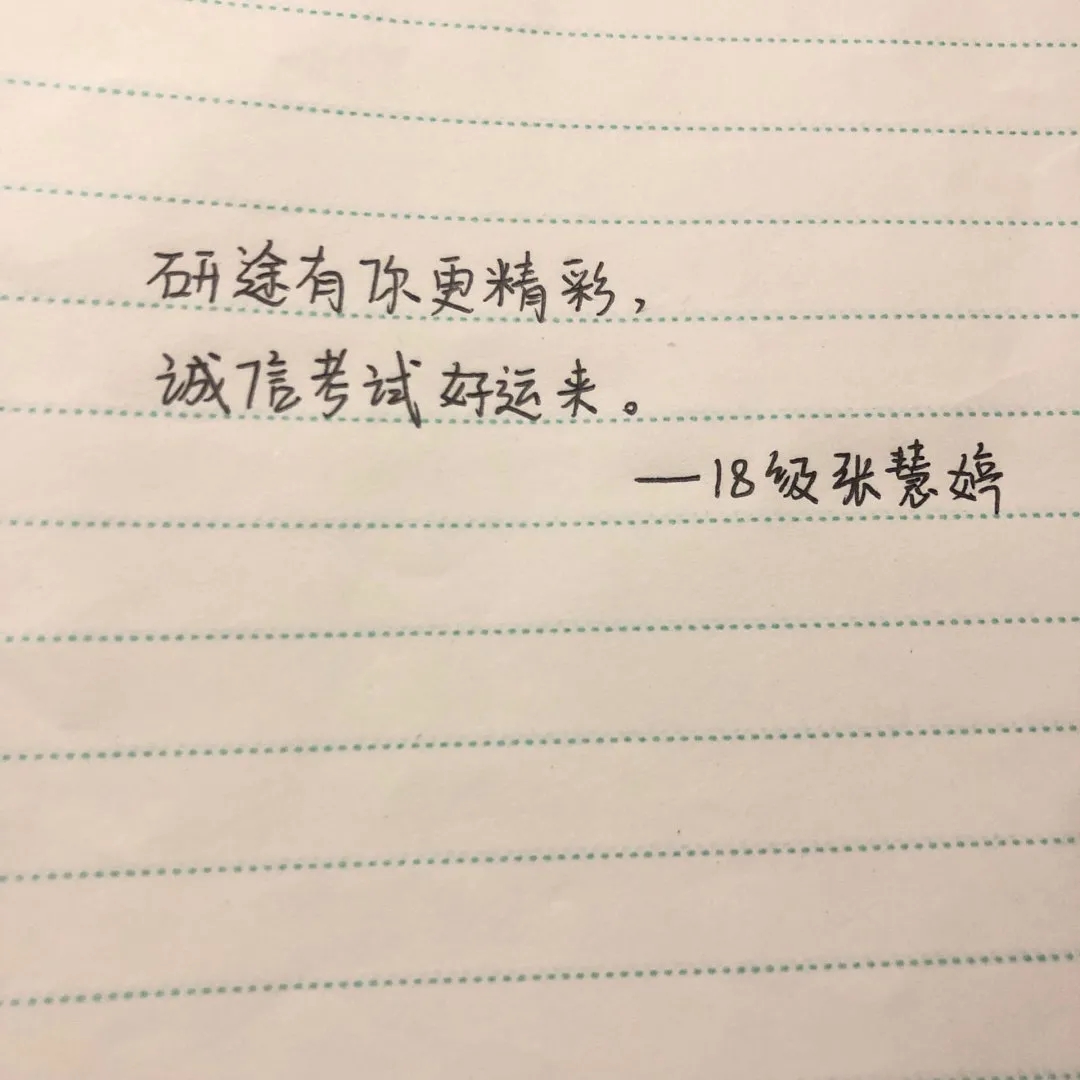 研途有你更精彩，
诚信考试好运来。
—18级张慧婷